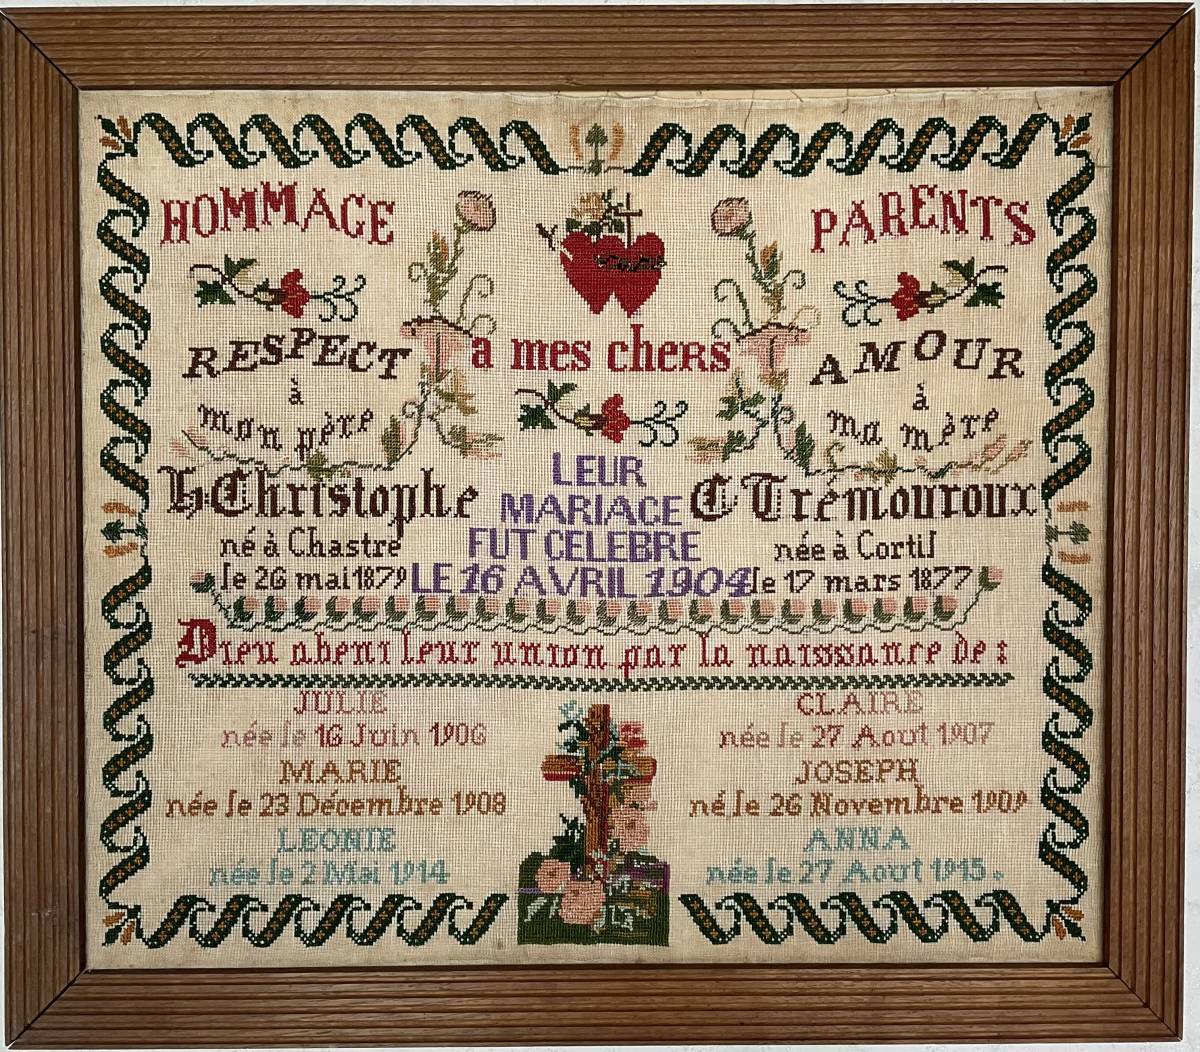 HOMMAGE
à mes chers
PARENTS
RESPECT
à
mon père
H. Christophe
né à Chastre
le 26 mai 1879
AMOUR
à
ma mère
C Trémouroux
née à Cortil
le 17 mars 1877
LEUR
MARIAGE
FUT CELEBRE
LE 16 AVRIL 1904
Dieu abeni leur union par la naisssance de :
JULIE
née le 16 Juin 1906
CLAIRE
née le 27 Aout 1907
MARIE
née le 23 Décembre 1908
JOSEPH
né le 26 Novembre 1909
LEONIE
née le 2 Mai 1914
ANNA
née le 27 Aout 1915.